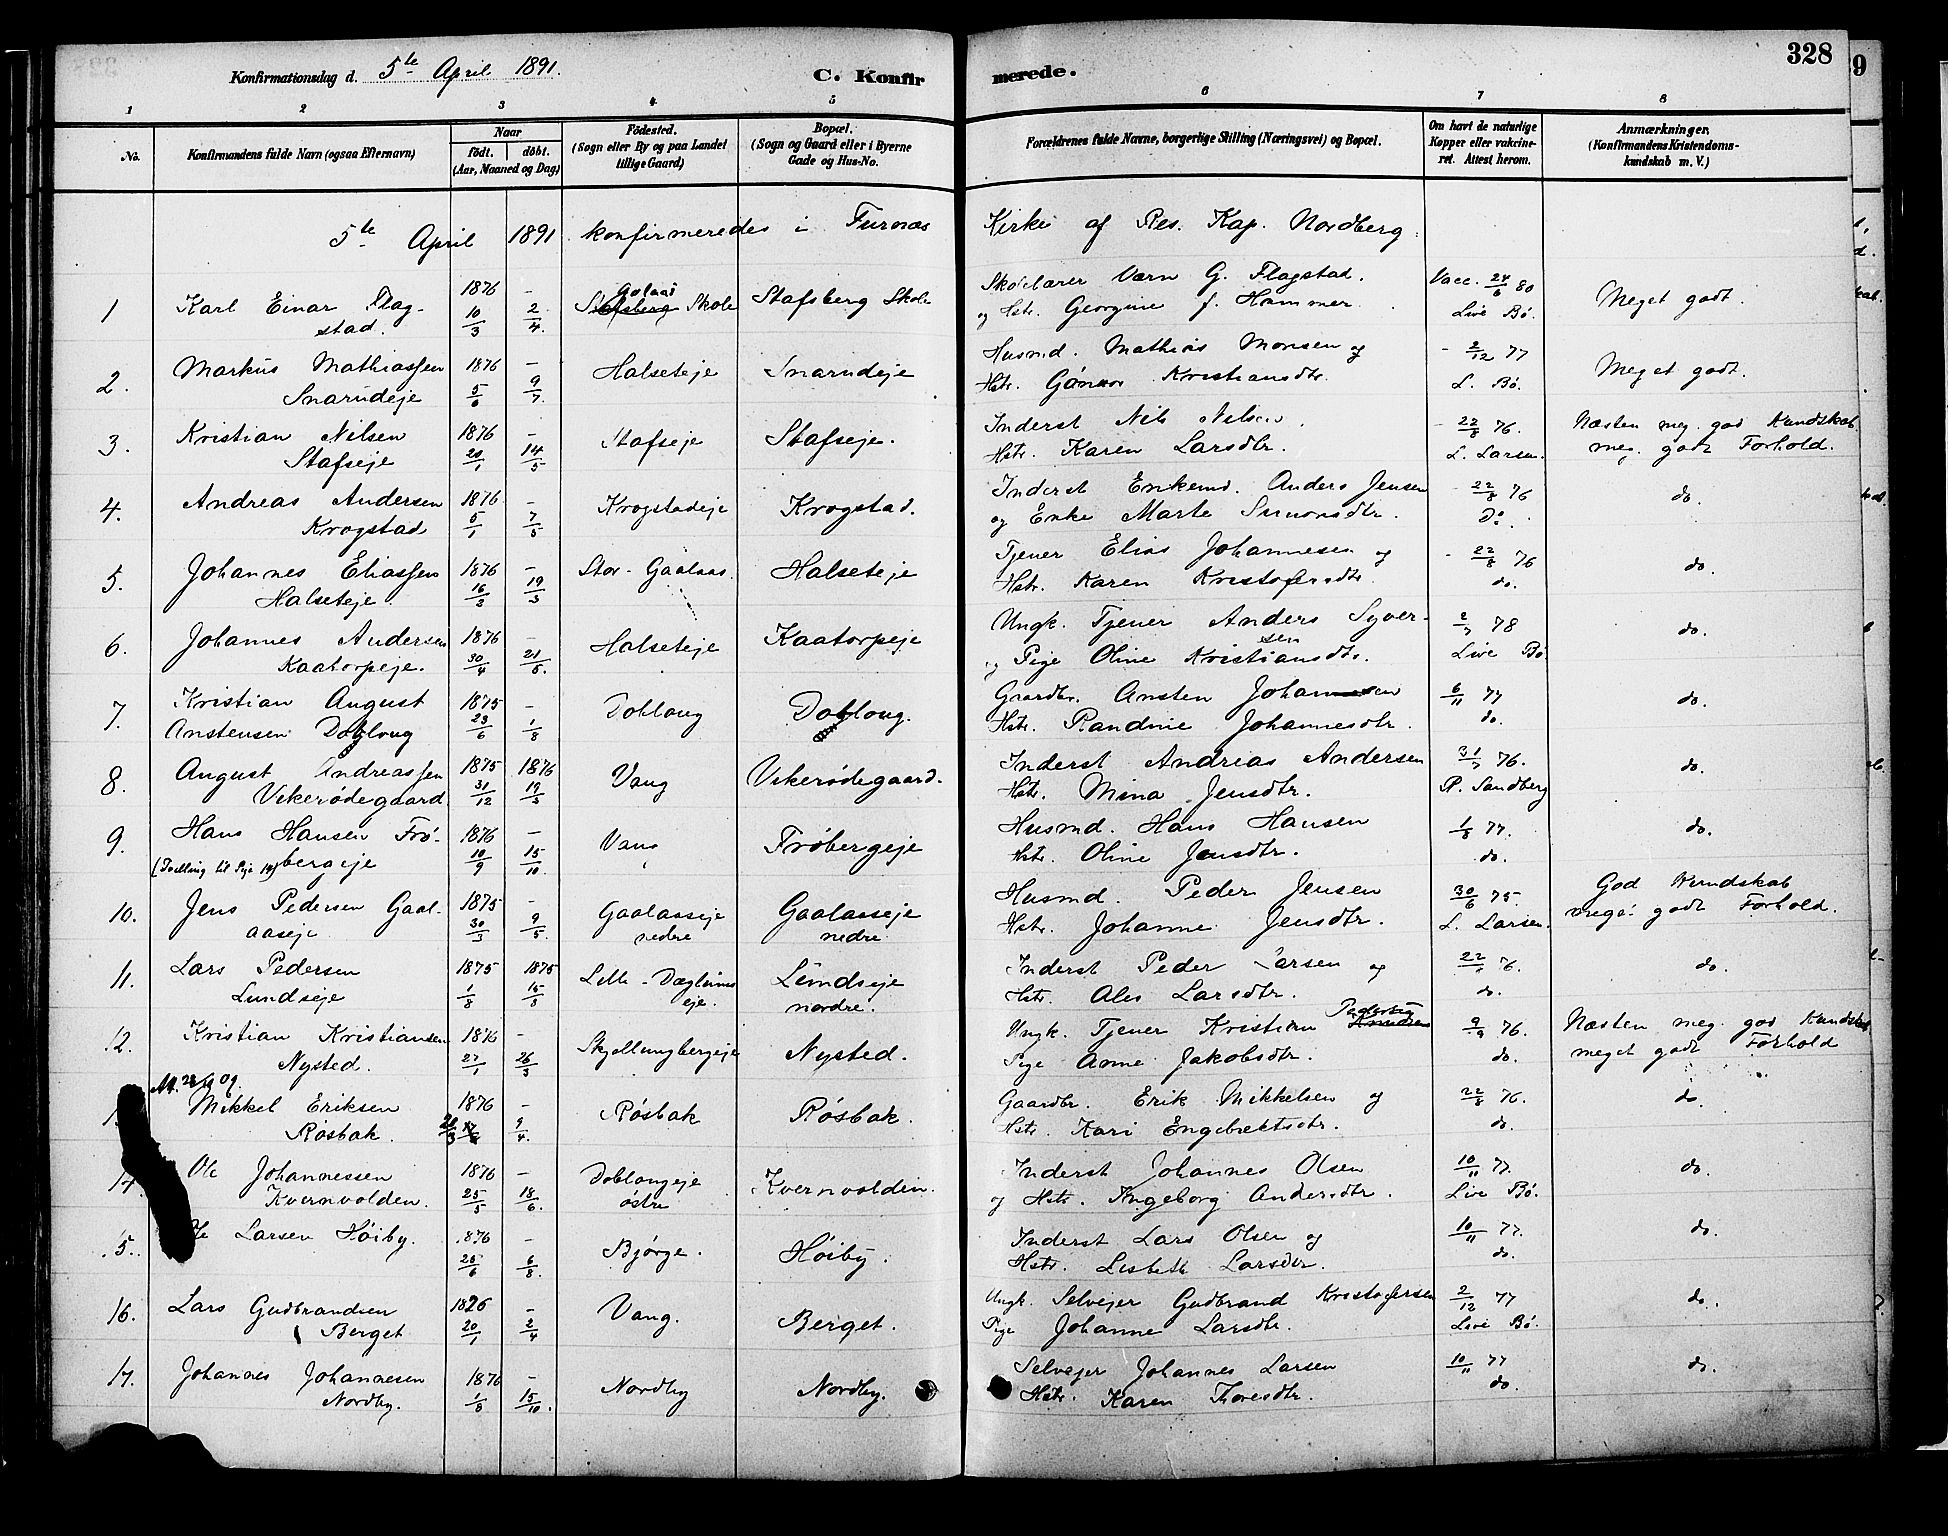 328
9
Konfirmationsdag d. 5te April 1891.
C. Konfirmerede.
1 2 3 4 5 6 7 8
No.
Konfirmandens fulde Navn (ogsaa Efternavn)
Naar
født. døbt.
(Aar, Maaned og Dag)
Födested.
(Sogn eller By og paa Landet tillige Gaard)
Bopæl.
(Sogn og Gaard eller i Byerne Gade og Hus-No.
Forældrenes fulde Navne, borgerlige Stilling (Næringsvei) og Bopæl.
Om havt de naturlige Kopper eller vakcineret. Attest herom.
Anmærkninger.
(Konfirmandens Kristendomskundskab m. V.)
5te April 1891 konfirmeredes i Furnæs Kirke af Res. Kap. Nordberg.
1 Karl Einar Flagstad. 1876 10/3 - 2/4 Skole Stafsberg Skole Skolelærer Værn G. Flagstad. Vacc. 24/6 80 Meget godt.
og Hstr. Georgine f. Hammer. Live Bø.
2. Markus Mathiassen Snarudeje 1876 5/6 - 9/7 Halseteje Snarudeje Husmd. Mathias Monsen og - 2/12 77 Meget godt.
Hstr. Kristiansdtr. L. Bø.
3. Kristian Nilsen Stafseje 1876 - 14/5 Stafseje Stafseje. Inderst Nils Nilsen - 22/8 76. Næsten meg. god Kundskab
Hstr. Karen Larsdtr. L. Larsen. meg. godt Forhold.
4. Andreas Andersen Krogstad 1876 5/1 - 7/5 Krogstadeje Krogstad. Inderst Enkemd. Anders Jensen - 22/8 76 do.
og Enke Marte Simonsdtr. Do.
5. Johannes Eliassen Halseteje. 1876 - 19/3 Stor-Gaalaas. Halseteje Tjener Elias Johannesen og - 22/8 76 do.
Hstr. Karen Kristofersdtr. do.
6. Johannes Andersen Kaatorpeje. 1876 30/4 - 21/5. Halseteje Kaatorpeje Ungk. Tjener Anders Syversen 78 do.
og Pige Oline Kristiansdtr. Live Bø
7. Kristian August Anstensen Dobloug 1875 23/6 - 1/8 Dobloug Dobloug. Gaardbr. Ansten Johannesen 6/11 77 do.
Hstr. Randine Johannesdtr. do.
8. August Andreassen Vikerødegaard 1875 31/12 1876 19/3 Vang Vikerødegaard. Inderst Andreas Andersen 31/7 76. do.
Hstr. Mina Jensdtr. P. Sandberg
9. Hans Hansen Frøbergeje 1876 10/9 - 15/10 Vang Frøbergeje Husmd. Hans Hansen 1/8 77. do.
(Tvilling til Pige 14) Hstr. Oline Jensdtr. do.
10. Jens Pedersen Gaalaaseje 1875 30/3 - 9/5 Gaalaaseje nedre Gaalaaseje nedre Husmd. Peder Jensen 30/6 75. God Kundskab
Hstr. Johanne Jensdtr. L. Larsen. meget godt Forhold.
11. Lars Pedersen Lundseje 1875 1/8 1875 15/8 Lille-Dæglumseje. Lundseje nordre. Inderst Peder Larsen og 76. do.
Hstr. Ales Larsdtr. do.
12. Kristian Kristiansen Nysted. 1876 27/1 - 26/3 Skjellungbergeje Nysted. Ungk. Tjener Kristian Pedersen 9/9 76. Næsten meg. god Kundskab
Pige Anne Jakobsdtr. do. meget godt Forhold
Mikkel Eriksen Røsbak. 1876 - 9/4. Røsbak Røsbak. Gaardbr. Erik Mikkelsen og 22/8 76. do.
Hstr. Kari Engebretsdtr. do.
14. Ole Johannessen Kvernvolden. 1876 25/5 - 18/6. Doblougeje østre Kvernvolden. Inderst Johannes Olsen 10/11 77. do.
og Hstr. Ingeborg Andersdtr. Live Bø.
15. Ole Larsen Høiby. 1876 25/6 - 6/8. Bjørge. Høiby. Inderst Lars Olsen og 10/11 77. do.
Hstr. Lisbeth Larsdtr. do.
16. Lars Gudbrandsen Berget 1876 20/1 - 2/4 Vang. Berget. Ungk. Selvejer Gudbrand Kristofersen 2/12 77 do.
Pige Johanne Larsdtr. Live Bø.
17. Johannes Johannesen Nordby. 1876 1/8 - 15/10. Nordby Nordby. Selvejer Johannes Larsen 10/11 77 do.
Hstr. Karen Thoresdtr. do.